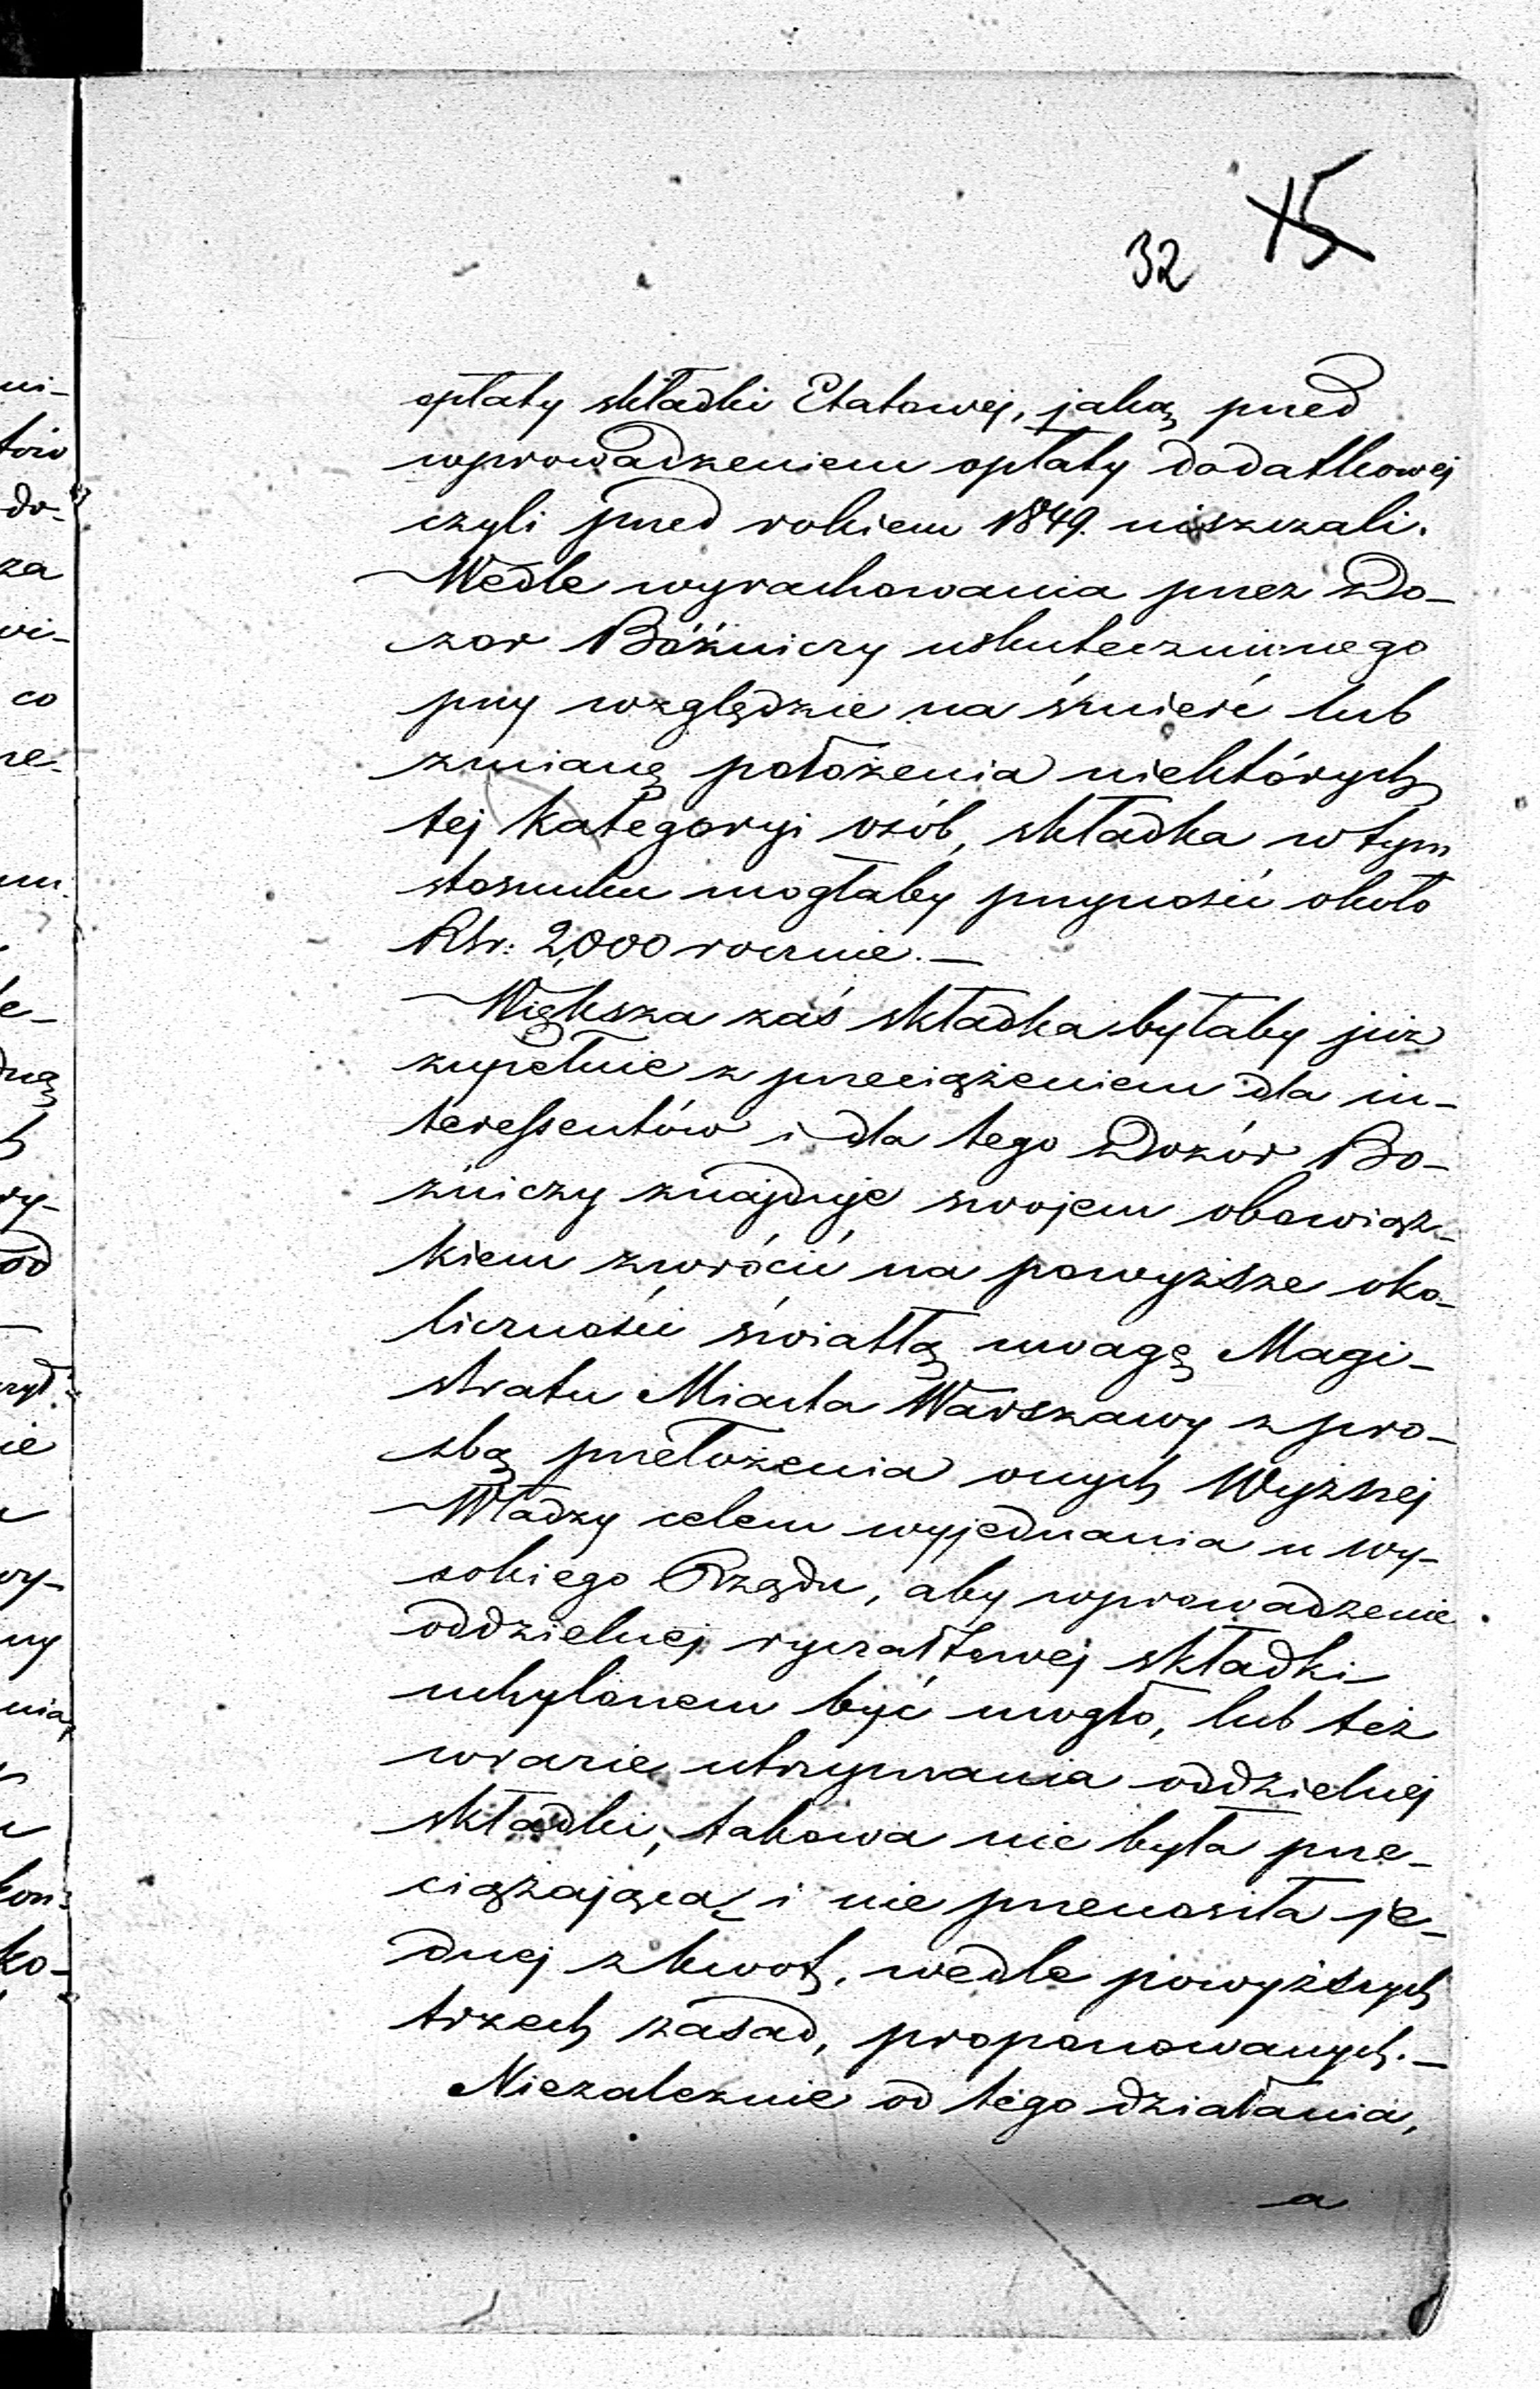 15
32
opłaty składki Etatowej, jaką przed
wprowadzeniem opłaty dodatkowej
czyli przed rokiem 1849. uiszczali.
Wedle wyrachowania przez Do-
zor Bóźniczy uskutecznionego
przy względzie na śmierć lub
zmianę położenia niektórych
tej kategoryi osób, składka w tym
stosunku mogłaby przynosić około
Rsr: 2,000 rocznie. —
Większa zaś składka byłaby już
zupełnie z przeciążeniem dla in-
teressentów i dla tego Dozór Bo-
źniczy znajduje swojem obowiąz-
kiem zwrócić na powyższe oko-
liczności światłą uwagę Magi-
stratu Miasta Warszawy z pro-
zbą przełożenia onych Wyższej
Władzy celem wyjednania u wy-
sokiego Rządu, aby wprowadzenie
oddzielnej ryczałtowej składki
uchylonem być mogło, lub też
w razie utrzymania oddzielnej
składki, takowa nie była prze-
ciążającą i nie przenosiła je-
dnej z kwot, wedle powyższych
trzech zasad, proponowanych. —
Niezależnie od tego działania,
a